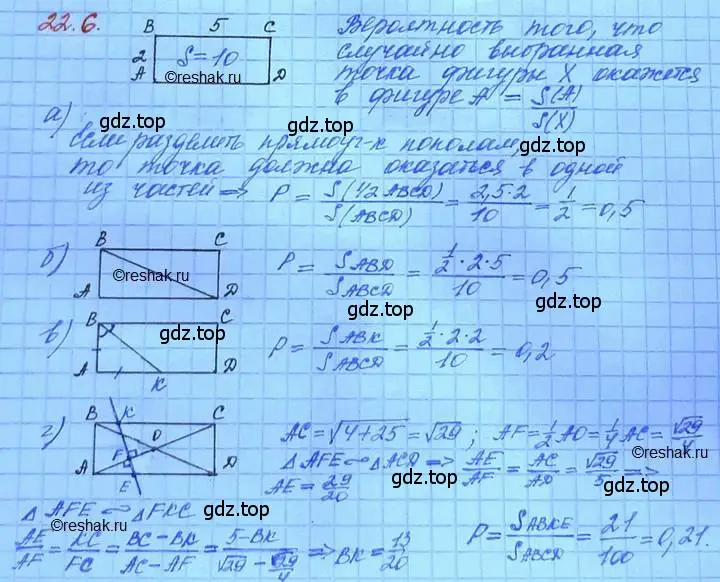 22.6.
B 5 C
2 S=10
A D
©reshak.ru
Вероятность того, что
случайно выбранная
точка фигуры X окажется
в фигуре A = S(A)/S(X)
gdz.top
gdz.top
а)
Если разделить прямоуг-к пополам,
то точка должна оказаться в одной
из частей ⇒ P = S(1/2 ABCD)/S(ABCD) = 2,5·2/10 = 1/2 = 0,5
gdz.top
б)
B C
A D
©reshak.ru
P = S ABD/S ABCD = 1/2·2·5/10 = 0,5
gdz.top
gdz.top
в)
B C
A K D
gdz.top
P = S ABK/S ABCD = 1/2·2·2/10 = 0,2
gdz.top
г)
B K C
O
F
A E D
gdz.top
AC = √4+25 = √29; AF = 1/2 AO = 1/4 AC = √29/4
△AFE ∽ △ACD ⇒ AE/AF = AC/AD = √29/5 ⇒
AE = 29/20
gdz.top
△AFE ∽ △FKC
AE/AF = KC/FC = BC-BK/AC-AF = 5-BK/√29-√29/4 ⇒ BK = 13/20
P = S ABKE/S ABCD = 21/100 = 0,21.
gdz.top
gdz.top